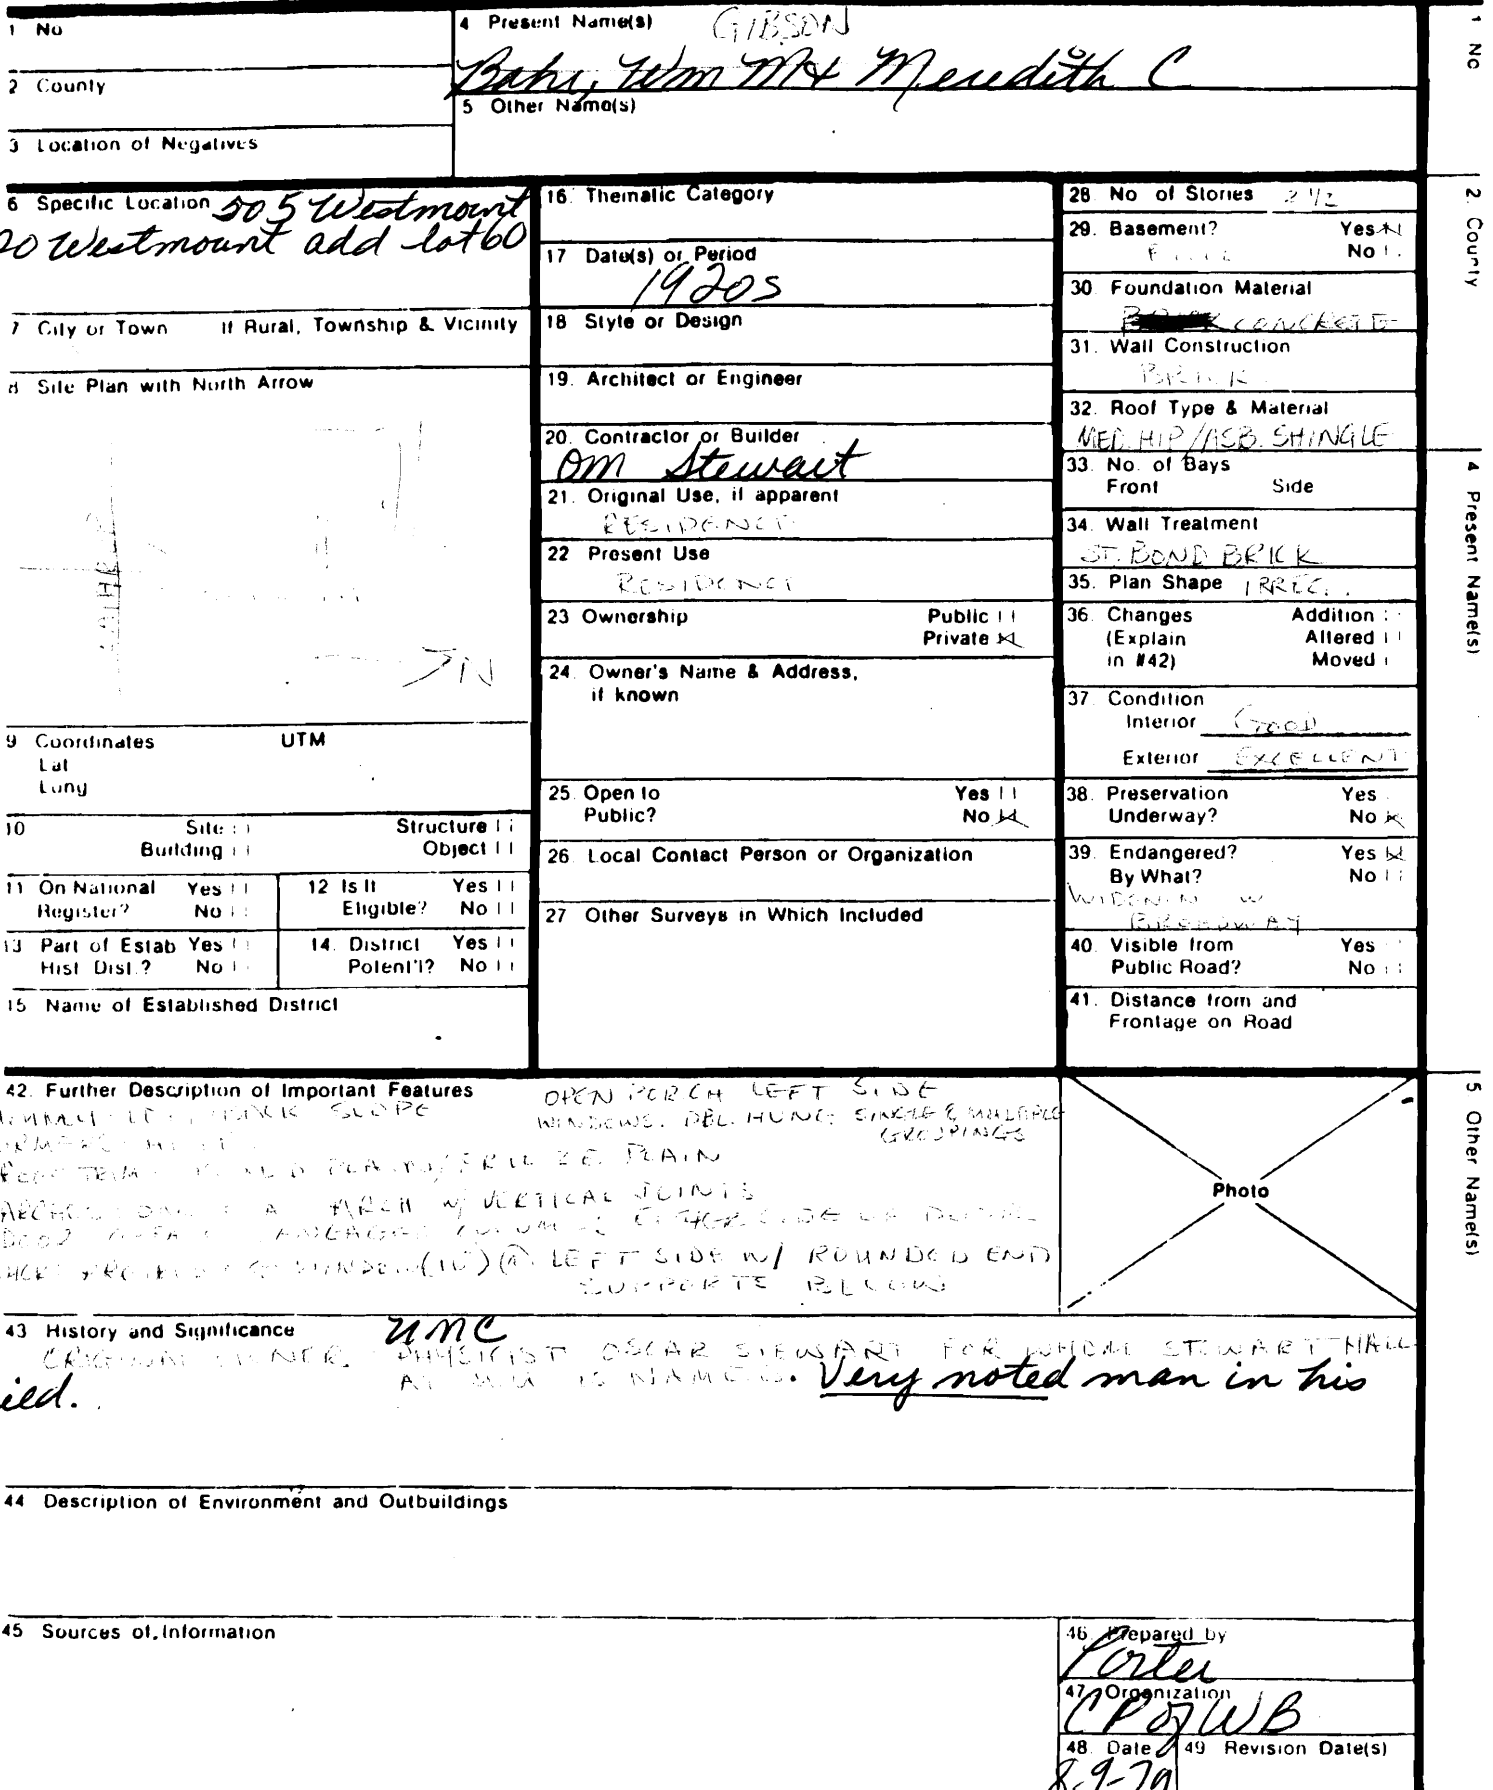 1 No
4 Present Name(s) GIBSON
Bahr, Wm M & Meredith C
2 County
5 Other Name(s)
3 Location of Negatives
6 Specific Location 505 Westmount
20 Westmount add lot 60
7 City or Town If Rural, Township & Vicinity
8 Site Plan with North Arrow
N
9 Coordinates UTM
Lat
Long
10 Site
Structure
Building
Object
11 On National Register? Yes No
12 Is It Eligible? Yes No
13 Part of Estab Hist Dist.? Yes No
14. District Potent'l? Yes No
15 Name of Established District
16. Thematic Category
17 Date(s) or Period
1920s
18 Style or Design
19. Architect or Engineer
20. Contractor or Builder
OM Stewart
21. Original Use, if apparent
RESIDENCE
22 Present Use
RESIDENCE
23 Ownership Public
Private X
24. Owner's Name & Address,
if known
25. Open to Yes
Public? No X
26. Local Contact Person or Organization
27 Other Surveys in Which Included
28. No of Stories 2 1/2
29. Basement? Yes X
No
30. Foundation Material
CONCRETE
31. Wall Construction
BRICK
32. Roof Type & Material
MED. HIP/ASB. SHINGLE
33. No. of Bays
Front Side
34. Wall Treatment
ST. BOND BRICK
35. Plan Shape IRREG.
36. Changes Addition
(Explain Altered
in #42) Moved
37. Condition
Interior GOOD
Exterior EXCELLENT
38. Preservation Yes
Underway? No X
39. Endangered? Yes X
By What? No
W
BROADWAY
40. Visible from Yes
Public Road? No
41. Distance from and
Frontage on Road
42. Further Description of Important Features
OPEN PORCH LEFT SIDE
SLOPE
WINDOWS: DBL. HUNG. SINGLE & MULTIPLE
GROUPINGS
TRIM PLAIN
ARCH W/ VERTICAL JOINTS
EITHER SIDE OF
LEFT SIDE W/ ROUNDED END
SUPPORTS BELOW
Photo
43 History and Significance UMC
ORIGINAL OWNER. PHYSICIST OSCAR STEWART FOR WHOM STEWART HALL
AT IS NAMED. Very noted man in his
ied.
44 Description of Environment and Outbuildings
45 Sources of Information
46. Prepared by
Porter
47. Organization
CP of WB
48. Date 49 Revision Date(s)
8-9-79
1 No
2. County
4 Present Name(s)
5 Other Name(s)